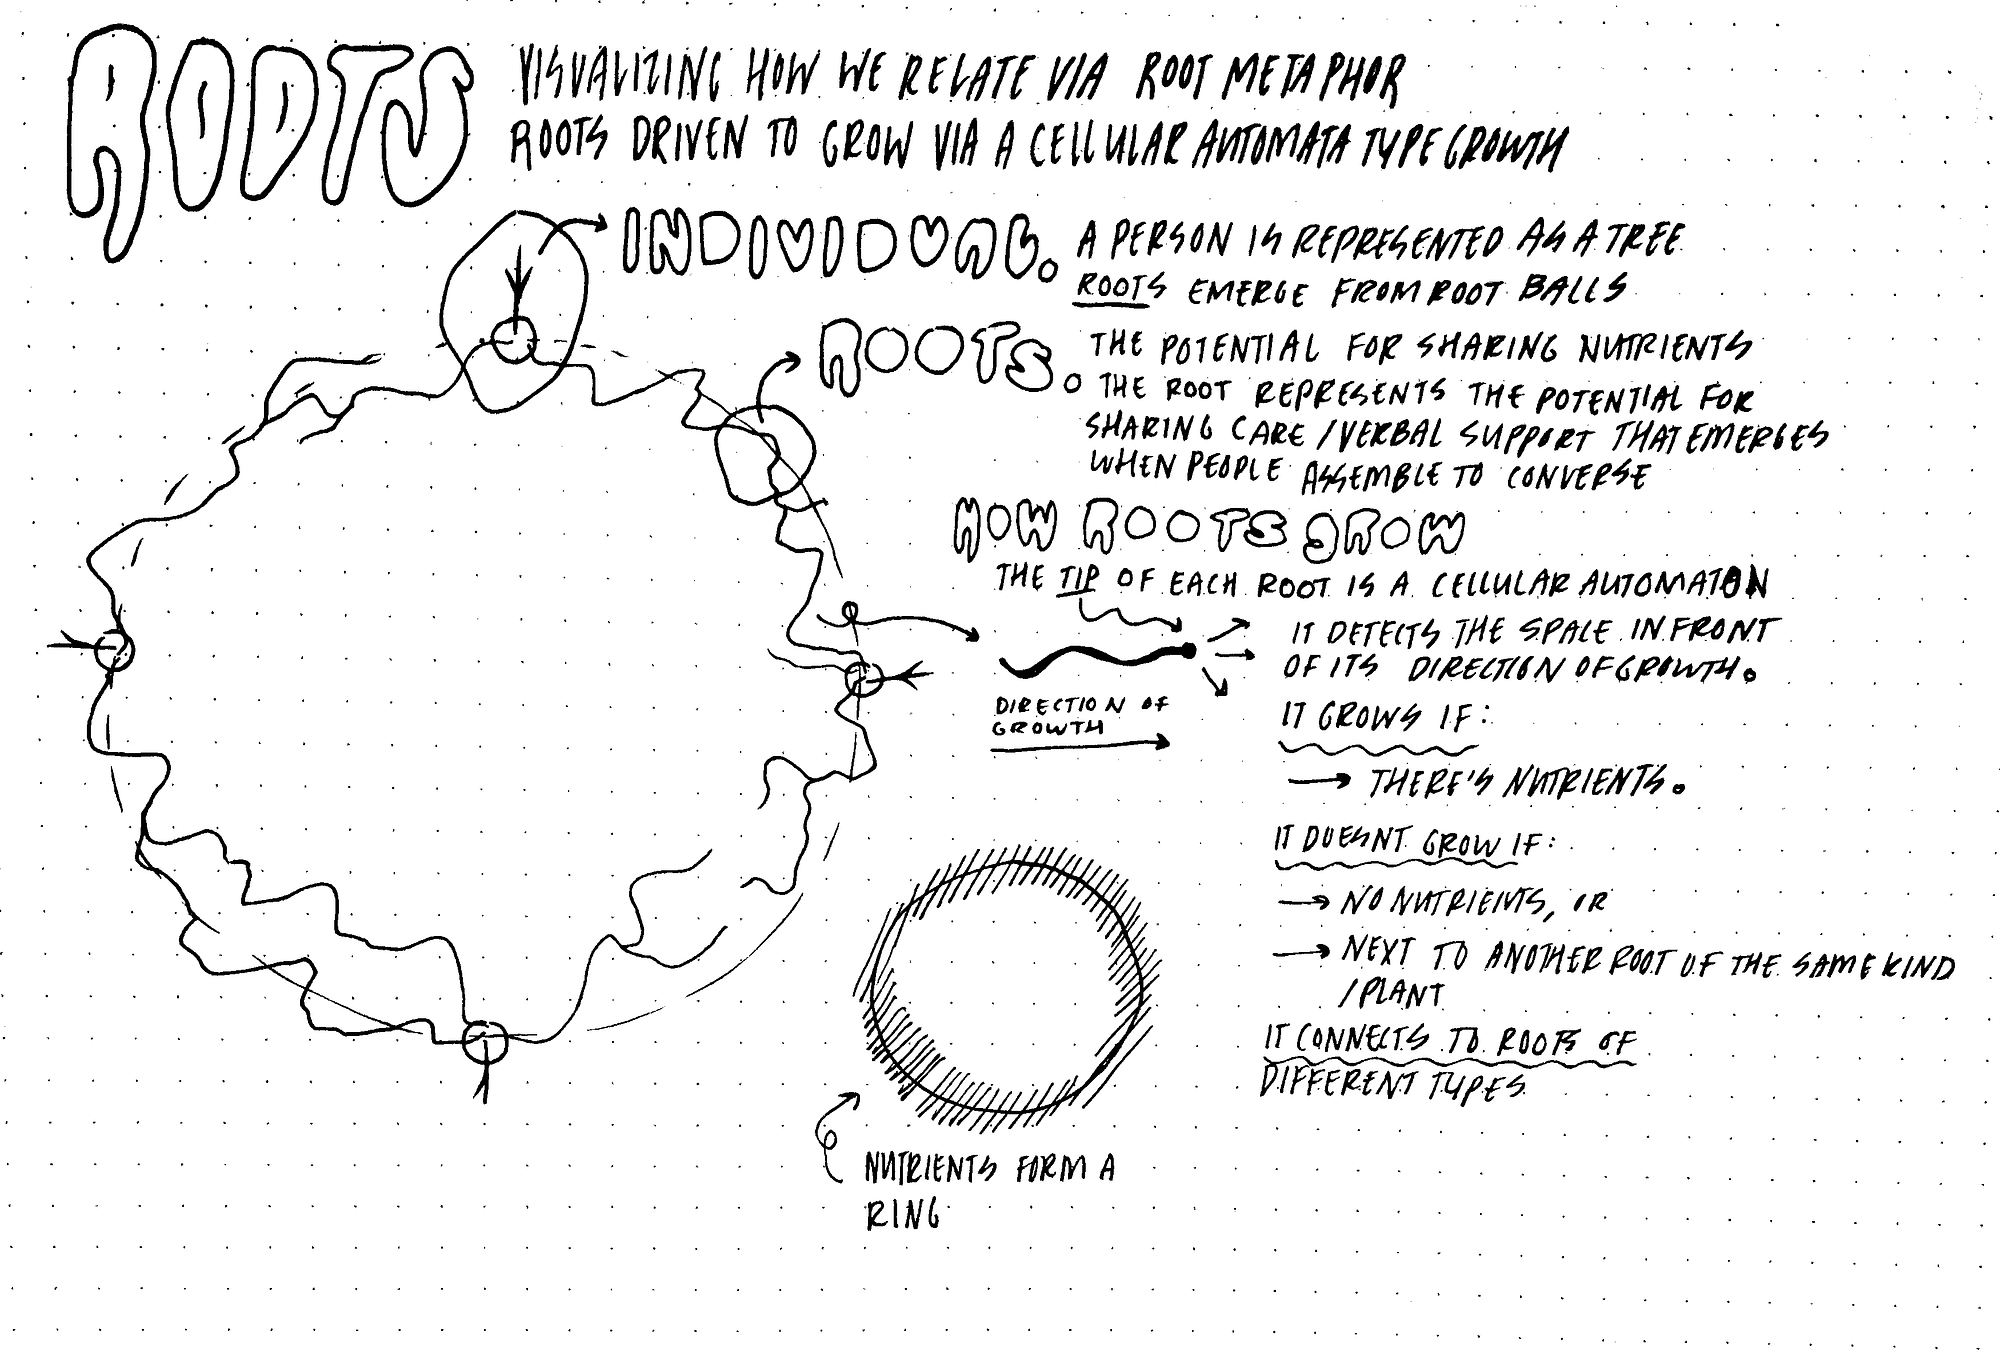 ROOTS
VISUALIZING HOW WE RELATE VIA ROOT METAPHOR
ROOTS DRIVEN TO GROW VIA A CELLULAR AUTOMATA TYPE GROWTH
INDIVIDUAL. A PERSON IS REPRESENTED AS A TREE
ROOTS EMERGE FROM ROOT BALLS
ROOTS. THE POTENTIAL FOR SHARING NUTRIENTS
THE ROOT REPRESENTS THE POTENTIAL FOR
SHARING CARE / VERBAL SUPPORT THAT EMERGES
WHEN PEOPLE ASSEMBLE TO CONVERSE
HOW ROOTS GROW
THE TIP OF EACH ROOT IS A CELLULAR AUTOMATON
IT DETECTS THE SPACE IN FRONT
OF ITS DIRECTION OF GROWTH.
DIRECTION OF
GROWTH
IT GROWS IF:
→ THERE'S NUTRIENTS.
IT DOESNT GROW IF:
→ NO NUTRIENTS, OR
→ NEXT TO ANOTHER ROOT OF THE SAME KIND
/PLANT
IT CONNECTS TO ROOTS OF
DIFFERENT TYPES
NUTRIENTS FORM A
RING